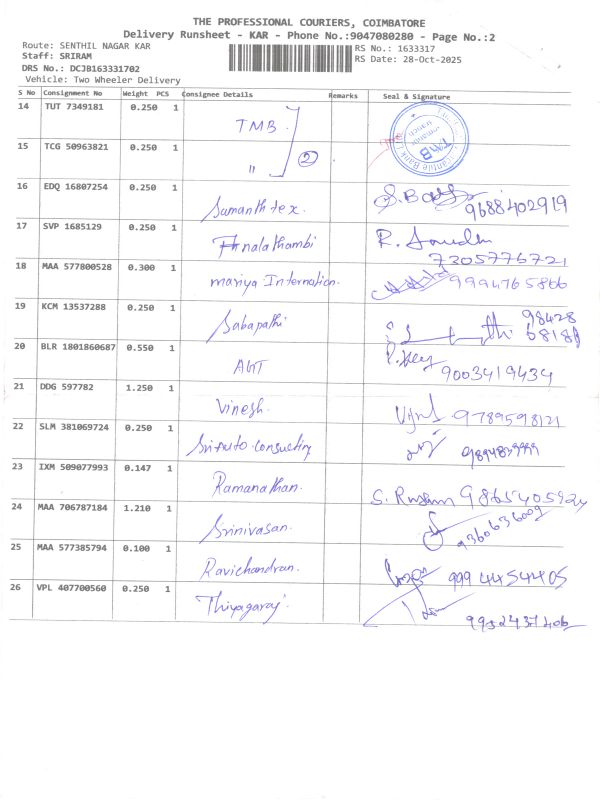 THE PROFESSIONAL COURIERS, COIMBATORE
Delivery Runsheet - KAR - Phone No.:9047080280 - Page No.:2
Route: SENTHIL NAGAR KAR
RS No.: 1633317
Staff: SRIRAM
RS Date: 28-Oct-2025
DRS No.: DCJB163331702
Vehicle: Two Wheeler Delivery
S No Consignment No Weight PCS Consignee Details Remarks Seal & Signature
14 TUT 7349181 0.250 1 TMB
15 TCG 50963821 0.250 1 " 2
TMB
16 EDQ 16807254 0.250 1 Sumanth tex. 9688402919
17 SVP 1685129 0.250 1 7205776721
18 MAA 577800528 0.300 1 mariya Internation. 9994765866
19 KCM 13537288 0.250 1 Sabapathi 98428
20 BLR 1801860687 0.550 1 9003419434
21 DDG 597782 1.250 1 Vinesh. 9789598121
22 SLM 381069724 0.250 1
23 IXM 509077993 0.147 1 Ramanathan.
24 MAA 706787184 1.210 1 Srinivasan. 9360636009
25 MAA 577385794 0.100 1 Ravichandran. 9994454405
26 VPL 407700560 0.250 1 Thiyagaraj.